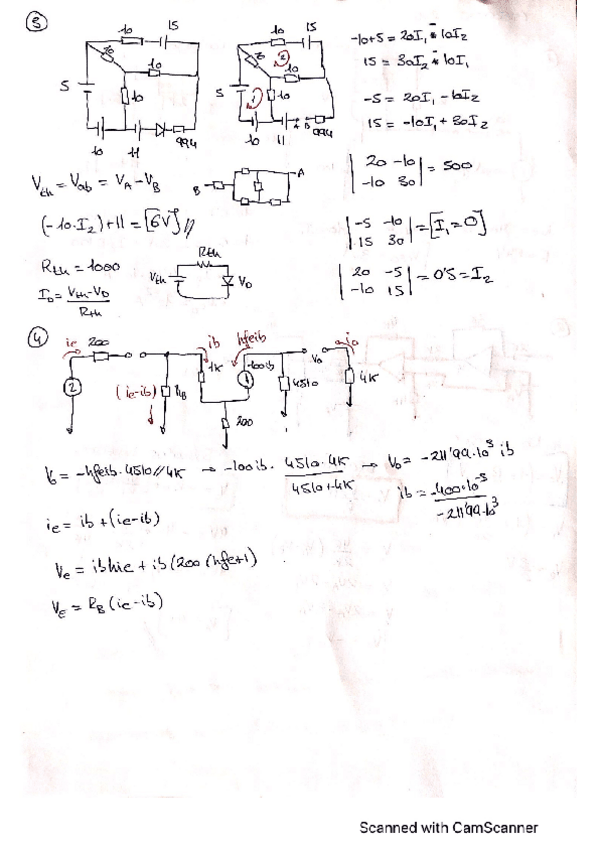 3
10 15
10
10
5
10
10 11 994
10 15
10
10
2
1
5
10
10 11 B 994
-10+5 = 20I₁ - 10I₂
15 = 30I₂ - 10I₁
-5 = 20I₁ - 10I₂
15 = -10I₁ + 30I₂
| 20 -10 | = 500
| -10 30 |
Vth = Vab = VA - VB
B A
(-10·I₂)+11 = [6V]//
| -5 -10 | = [I₁ = 0]
| 15 30 |
Rth = 1000
Rth
Vth VD
ID = Vth-VD / Rth
| 20 -5 | = 0'5 = I₂
| -10 15 |
4
ie 200 ib hfeib io
2 (ie-ib) RB 1K -100ib 4510 Vo 4K
200
Vo = -hfeib·4510//4K → -100ib· 4510·4K / 4510+4K → Vo = -211'99·10³ ib
ib = -400·10⁻³ / -211'99·10³
ie = ib + (ie-ib)
Ve = ibhie + ib(200(hfe+1)
VE = RB (ie-ib)
Scanned with CamScanner